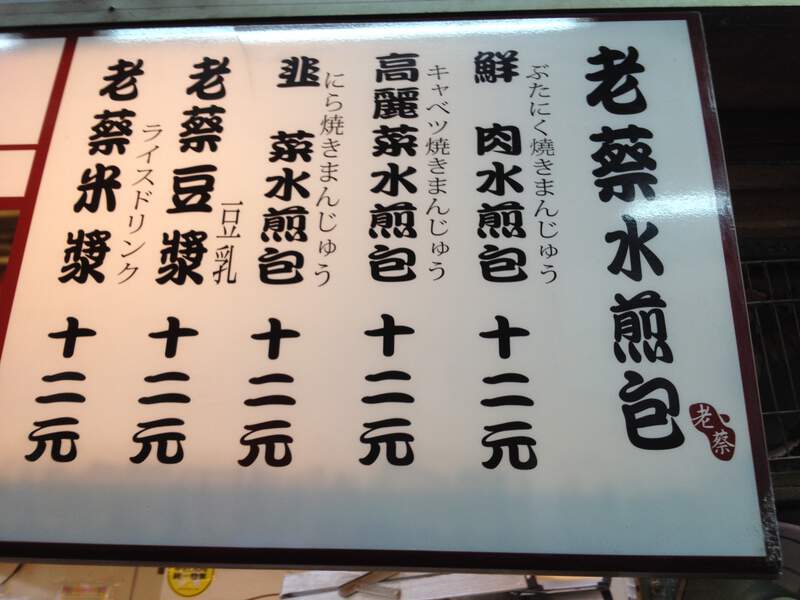 老蔡水煎包
老蔡
ぶたにく燒きまんじゅう
鮮肉水煎包 十二元
キャベツ燒きまんじゅう
高麗菜水煎包 十二元
にら燒きまんじゅう
韭菜水煎包 十二元
豆乳
老蔡豆漿 十二元
ライスドリンク
老蔡米漿 十二元